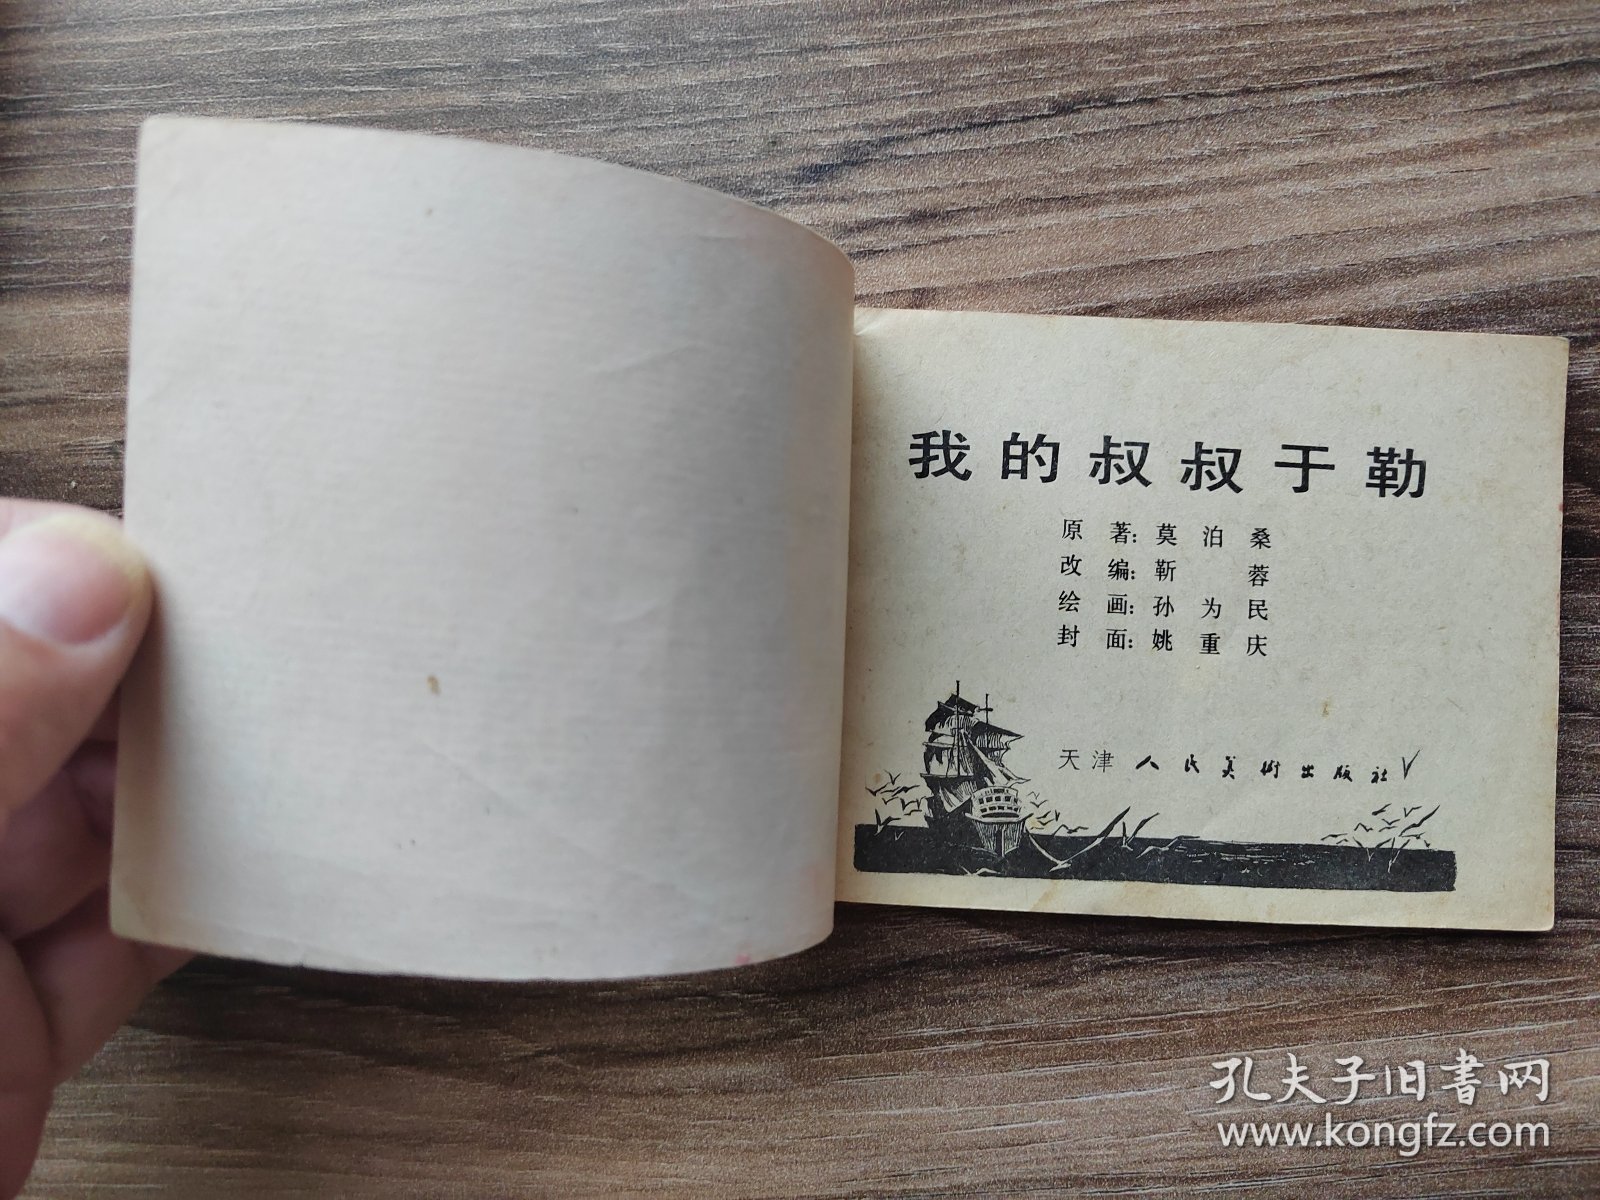 我的叔叔于勒
原著：莫泊桑
改编：靳蓉
绘画：孙为民
封面：姚重庆
天津人民美術出版社
孔夫子旧書网
www.kongfz.com